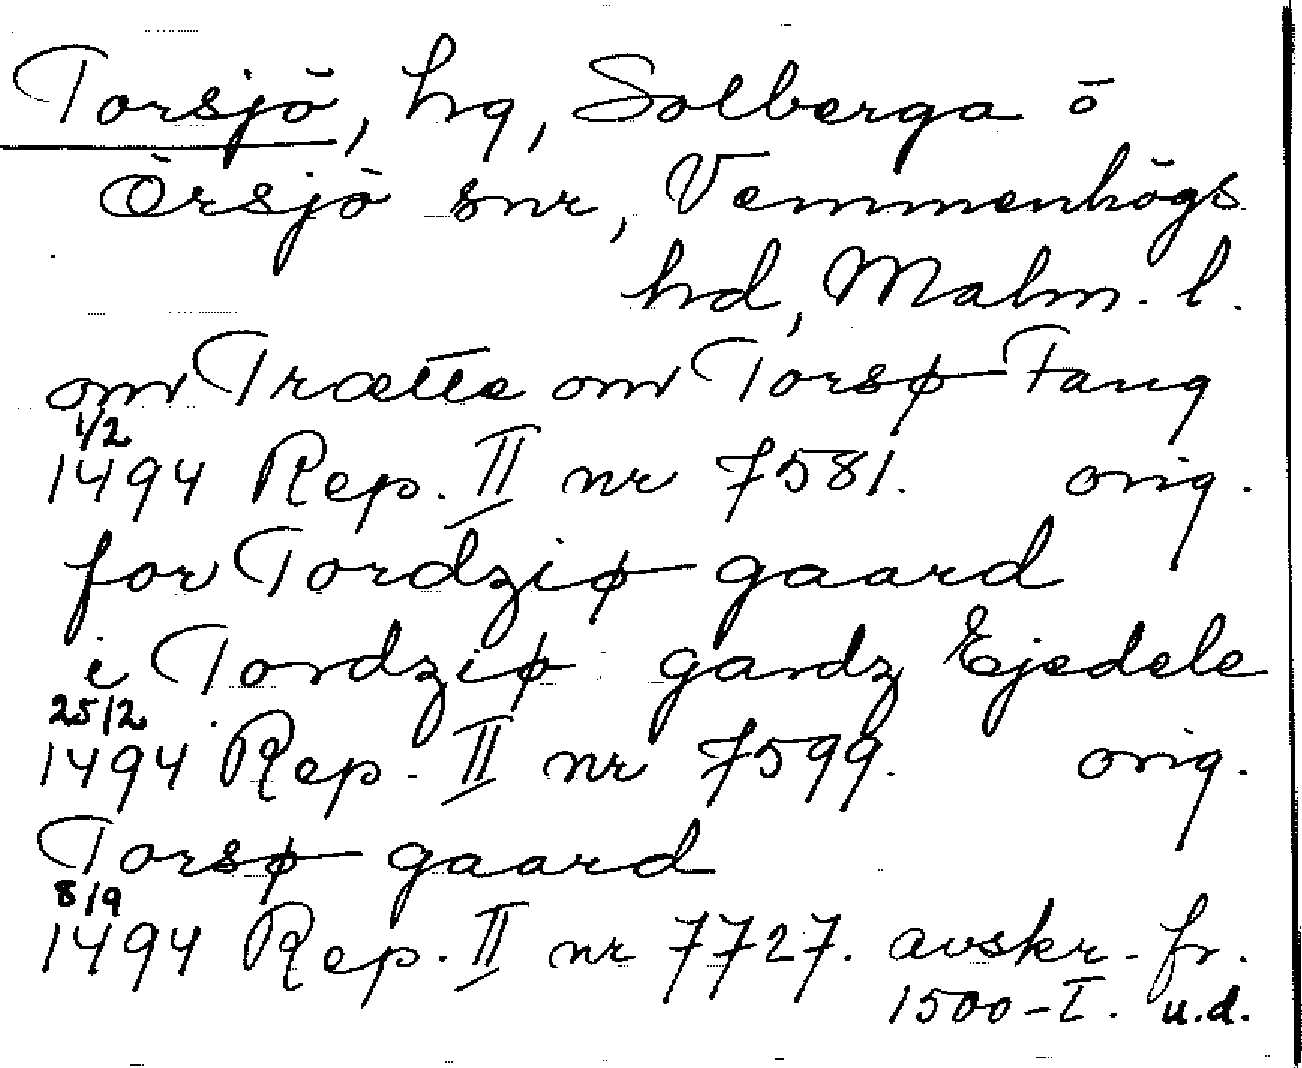 Torsjö, hg, Solberga o
Örsjö snr, Vemmenhögs
hd, Malm. l.
om Trætte om Torsø Fang
1/2
1494 Rep. II nr 7581. orig.
for Tordziø gaard
i Tordziø gardz Ejedele
25/2
1494 Rep. II nr 7599. orig.
Torsø gaard
8/9
1494 Rep. II nr 7727. avskr. fr.
1500-T. u.d.